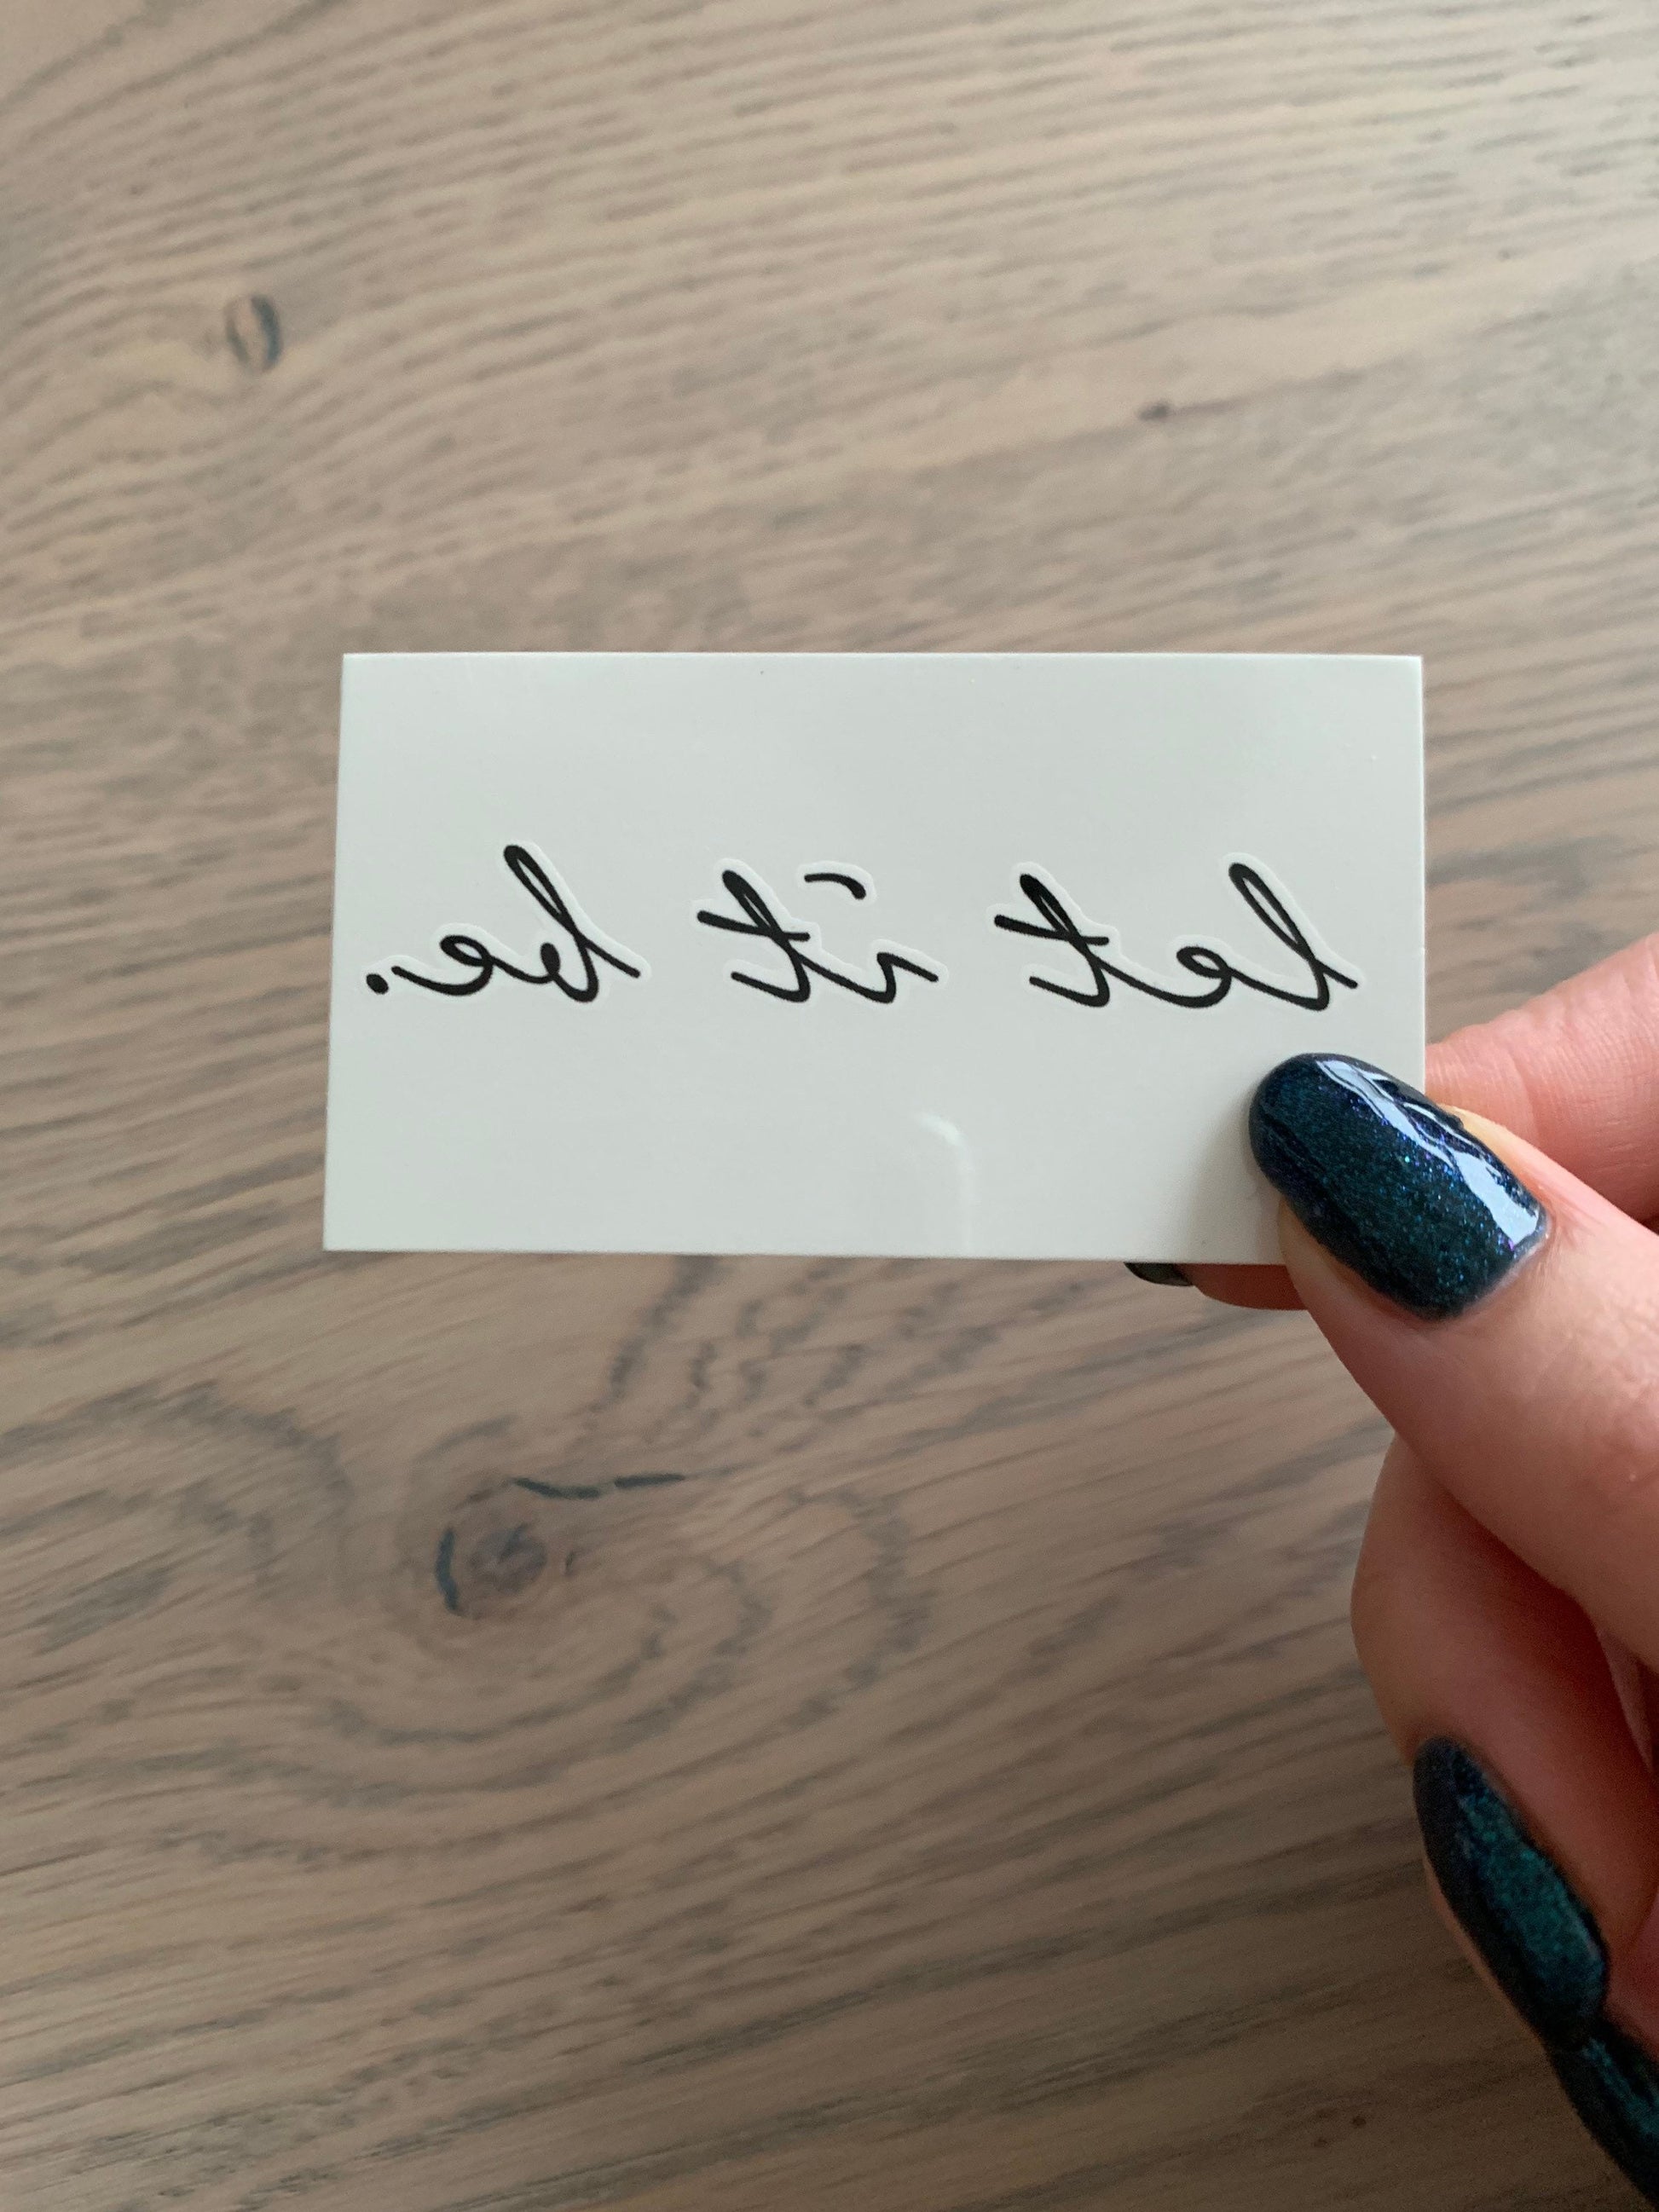 let it be.